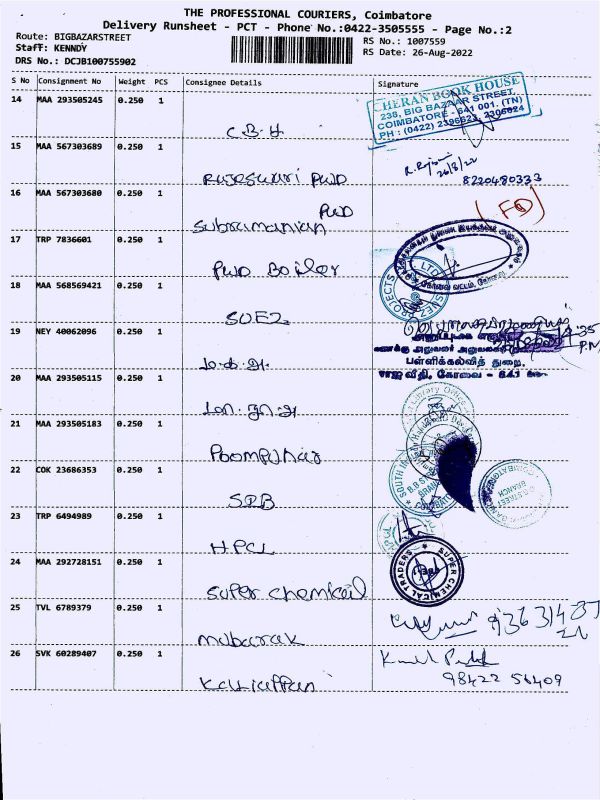 THE PROFESSIONAL COURIERS, Coimbatore
Delivery Runsheet - PCT - Phone No.:0422-3505555 - Page No.:2
Route: BIGBAZARSTREET
RS No.: 1007559
Staff: KENNDY
RS Date: 26-Aug-2022
DRS No.: DCJB100755902
S No Consignment No Weight PCS Consignee Details Signature
14 MAA 293505245 0.250 1
CHERAN BOOK HOUSE
238, BIG BAZAAR STREET,
COIMBATORE - 641 001. (TN)
PH : (0422) 2396623, 2306824
C.B.H
15 MAA 567303689 0.250 1
26/8/22
8220480333
Rajeswari PWD
16 MAA 567303680 0.250 1
PWD
Subramanian
17 TRP 7836601 0.250 1
PWD Boiler
18 MAA 568569421 0.250 1
PROJECTS LTD SUEZ
SUEZ
19 NEY 40062096 0.250 1
4.35
P.M
பள்ளிக்கல்வித் துறை.
ராஜ வீதி, கோவை - 641
ம.க.அ.
20 MAA 293505115 0.250 1
Library Office
மா.நூ.அ
21 MAA 293505183 0.250 1
Poompuhar
22 COK 23686353 0.250 1
SOUTH IN
BRANCH
SIB
23 TRP 6494989 0.250 1
HPCL
24 MAA 292728151 0.250 1
SUPER CHEMICAL TRADERS
Super chemical
25 TVL 6789379 0.250 1
mubarak
26 SVK 60289407 0.250 1
98422 56409
Kaliappan